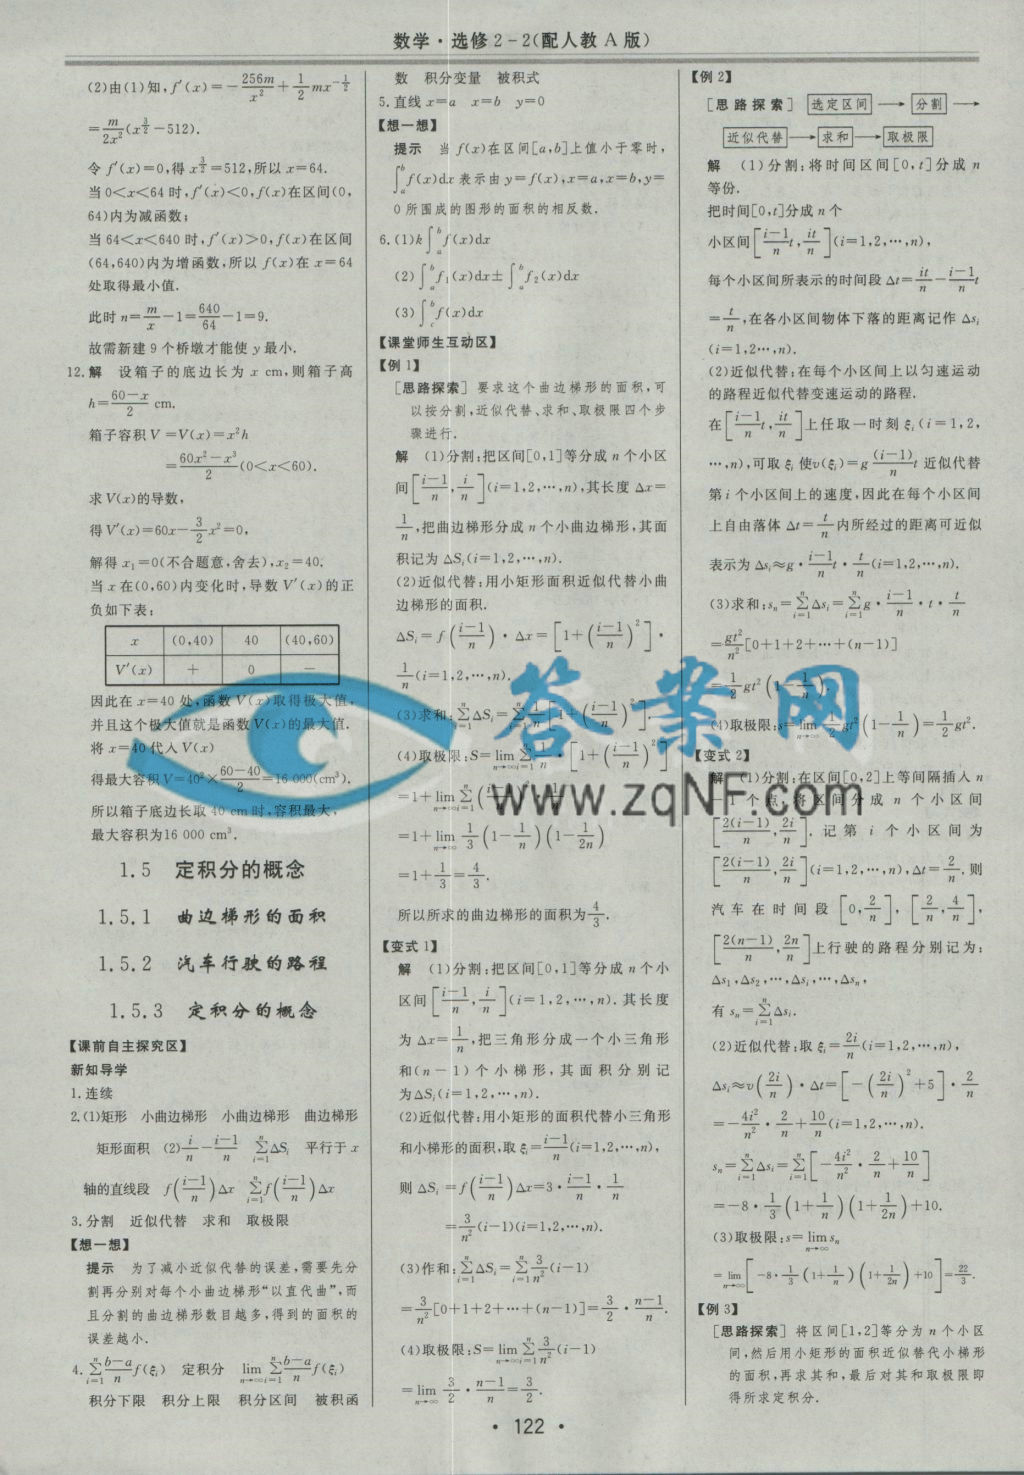 数学·选修2-2(配人教A版)
(2)由(1)知,f′(x)=-256m/x²+1/2 mx^(-1/2)
=m/2x²(x^(3/2)-512).
令f′(x)=0,得x^(3/2)=512,所以x=64.
当0<x<64时,f′(x)<0,f(x)在区间(0,
64)内为减函数;
当64<x<640时,f′(x)>0,f(x)在区间
(64,640)内为增函数,所以f(x)在x=64
处取得最小值.
此时n=m/x-1=640/64-1=9.
故需新建9个桥墩才能使y最小.
12.解 设箱子的底边长为x cm,则箱子高
h=(60-x)/2 cm.
箱子容积V=V(x)=x²h
=(60x²-x³)/2(0<x<60).
求V(x)的导数,
得V′(x)=60x-3/2 x²=0,
解得x₁=0(不合题意,舍去),x₂=40.
当x在(0,60)内变化时,导数V′(x)的正
负如下表:
x (0,40) 40 (40,60)
V′(x) + 0 -
因此在x=40处,函数V(x)取得极大值,
并且这个极大值就是函数V(x)的最大值.
将x=40代入V(x)
得最大容积V=40²×(60-40)/2=16 000(cm³).
所以箱子底边长取40 cm时,容积最大,
最大容积为16 000 cm³.
1.5 定积分的概念
1.5.1 曲边梯形的面积
1.5.2 汽车行驶的路程
1.5.3 定积分的概念
【课前自主探究区】
新知导学
1.连续
2.(1)矩形 小曲边梯形 小曲边梯形 曲边梯形
矩形面积 (2)i/n-(i-1)/n ∑(i=1→n)ΔSᵢ 平行于x
轴的直线段 f((i-1)/n)Δx ∑(i=1→n)f((i-1)/n)Δx
3.分割 近似代替 求和 取极限
【想一想】
提示 为了减小近似代替的误差,需要先分
割再分别对每个小曲边梯形“以直代曲”,而
且分割的曲边梯形数目越多,得到的面积的
误差越小.
4.∑(i=1→n)(b-a)/n f(ξᵢ) 定积分 lim(n→∞)∑(i=1→n)(b-a)/n f(ξᵢ)
积分下限 积分上限 积分区间 被积函
数 积分变量 被积式
5.直线x=a x=b y=0
【想一想】
提示 当f(x)在区间[a,b]上值小于零时,
∫(a→b)f(x)dx表示由y=f(x),x=a,x=b,y=
0所围成的图形的面积的相反数.
6.(1)k∫(a→b)f(x)dx
(2)∫(a→b)f₁(x)dx±∫(a→b)f₂(x)dx
(3)∫(c→b)f(x)dx
【课堂师生互动区】
【例1】
[思路探索] 要求这个曲边梯形的面积,可
以按分割,近似代替、求和、取极限四个步
骤进行.
解 (1)分割:把区间[0,1]等分成n个小区
间[(i-1)/n,i/n](i=1,2,…,n),其长度Δx=
1/n,把曲边梯形分成n个小曲边梯形,其面
积记为ΔSᵢ(i=1,2,…,n).
(2)近似代替:用小矩形面积近似代替小曲
边梯形的面积.
ΔSᵢ=f((i-1)/n)·Δx=[1+((i-1)/n)²]·
1/n(i=1,2,…,n).
(3)求和:∑(i=1→n)ΔSᵢ=∑(i=1→n)1/n[1+((i-1)/n)²].
(4)取极限:S=lim(n→∞)∑(i=1→n)1/n·[1+((i-1)/n)²]
=1+lim(n→∞)∑
=1+lim(n→∞)1/3(1-1/n)(1-1/2n)
=1+1/3=4/3.
所以所求的曲边梯形的面积为4/3.
【变式1】
解 (1)分割:把区间[0,1]等分成n个小
区间[(i-1)/n,i/n](i=1,2,…,n).其长度
为Δx=1/n,把三角形分成一个小三角形
和(n-1)个小梯形,其面积分别记
为ΔSᵢ(i=1,2,…,n).
(2)近似代替:用小矩形的面积代替小三角形
和小梯形的面积,取ξᵢ=(i-1)/n(i=1,2,…,n),
则ΔSᵢ=f((i-1)/n)Δx=3·(i-1)/n·1/n
=3/n²(i-1)(i=1,2,…,n).
(3)作和:∑(i=1→n)ΔSᵢ=∑(i=1→n)3/n²(i-1)
=3/n²[0+1+2+…+(n-1)]=3/2·(n-1)/n.
(4)取极限:S=lim(n→∞)∑(i=1→n)3/n²(i-1)
=lim(n→∞)3/2·(n-1)/n=3/2.
【例2】
[思路探索] 选定区间→分割→
近似代替→求和→取极限
解 (1)分割:将时间区间[0,t]分成n
等份.
把时间[0,t]分成n个
小区间[(i-1)/n t,it/n](i=1,2,…,n),
每个小区间所表示的时间段Δt=it/n-(i-1)/n t
=t/n,在各小区间物体下落的距离记作Δsᵢ
(i=1,2…,n).
(2)近似代替:在每个小区间上以匀速运动
的路程近似代替变速运动的路程.
在[(i-1)/n t,it/n]上任取一时刻ξᵢ(i=1,2,
…,n),可取ξᵢ使v(ξᵢ)=g (i-1)/n t近似代替
第i个小区间上的速度,因此在每个小区间
上自由落体Δt=t/n内所经过的距离可近似
表示为Δsᵢ≈g·(i-1)/n t·t/n(i=1,2,…,n).
(3)求和:sₙ=∑(i=1→n)Δsᵢ=∑(i=1→n)g·(i-1)/n·t·t/n
=gt²/n²[0+1+2+…+(n-1)]
=1/2 gt²(1-1/n).
(4)取极限:s=lim(n→∞)1/2 gt²(1-1/n)=1/2 gt².
【变式2】
解 (1)分割:在区间[0,2]上等间隔插入n
-1个点,将区间分成n个小区间
[2(i-1)/n,2i/n].记第i个小区间为
[2(i-1)/n,2i/n](i=1,2,…,n),Δt=2/n.则
汽车在时间段[0,2/n],[2/n,4/n],
[2(n-1)/n,2n/n]上行驶的路程分别记为:
Δs₁,Δs₂,…,Δsᵢ,…,Δsₙ,
有sₙ=∑(i=1→n)Δsᵢ.
(2)近似代替:取ξᵢ=2i/n(i=1,2,…,n),
Δsᵢ≈v(2i/n)·Δt=[-(2i/n)²+5]·2/n
=-4i²/n²·2/n+10/n(i=1,2,…,n).
sₙ=∑(i=1→n)Δsᵢ=∑(i=1→n)[-4i²/n²·2/n+10/n]
=-8·1/3(1+1/n)(1+1/2n)+10.
(3)取极限:s=lim(n→∞)sₙ
=lim(n→∞)[-8·1/3(1+1/n)(1+1/2n)+10]=22/3.
【例3】
[思路探索] 将区间[1,2]等分为n个小区
间,然后用小矩形的面积近似代替小梯形
的面积,再求其和,最后对其和取极限即
得所求定积分.
·122·
答案网
www.zqNF.com